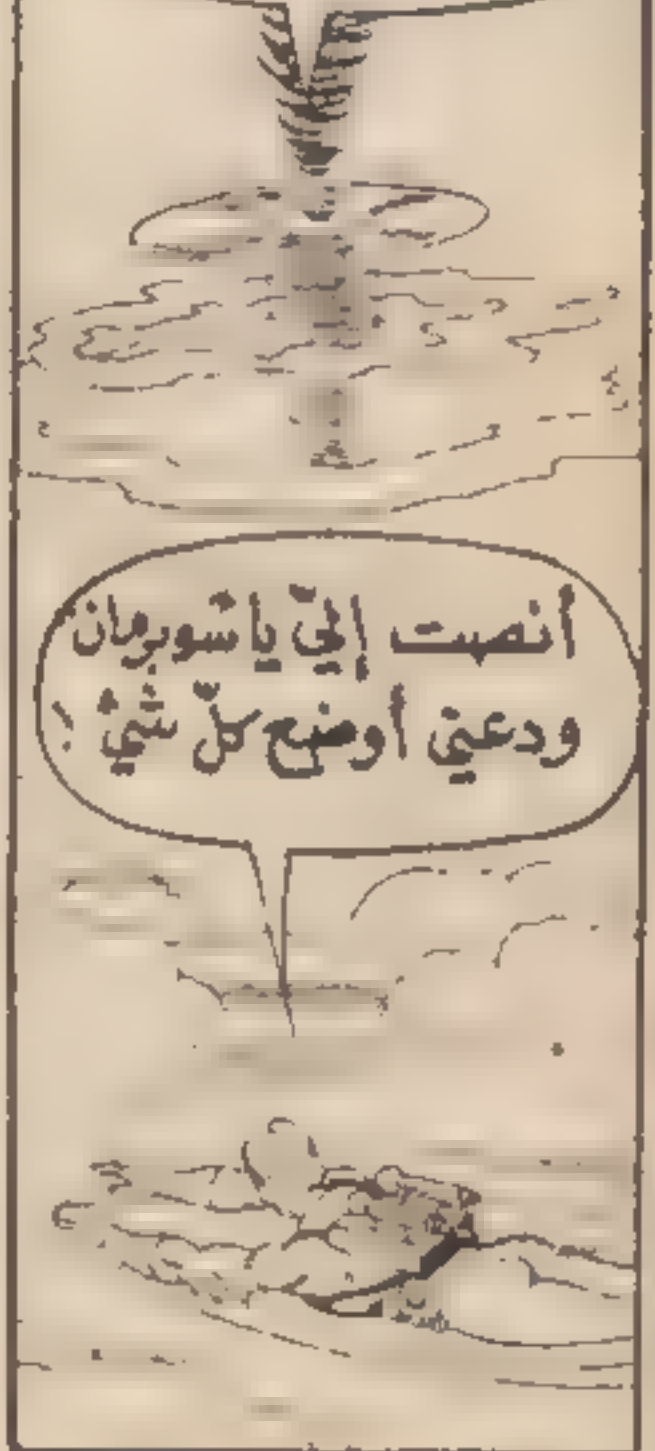 أنصت إليّ يا سوبرمان
ودعني أوضع كلّ شيْ !